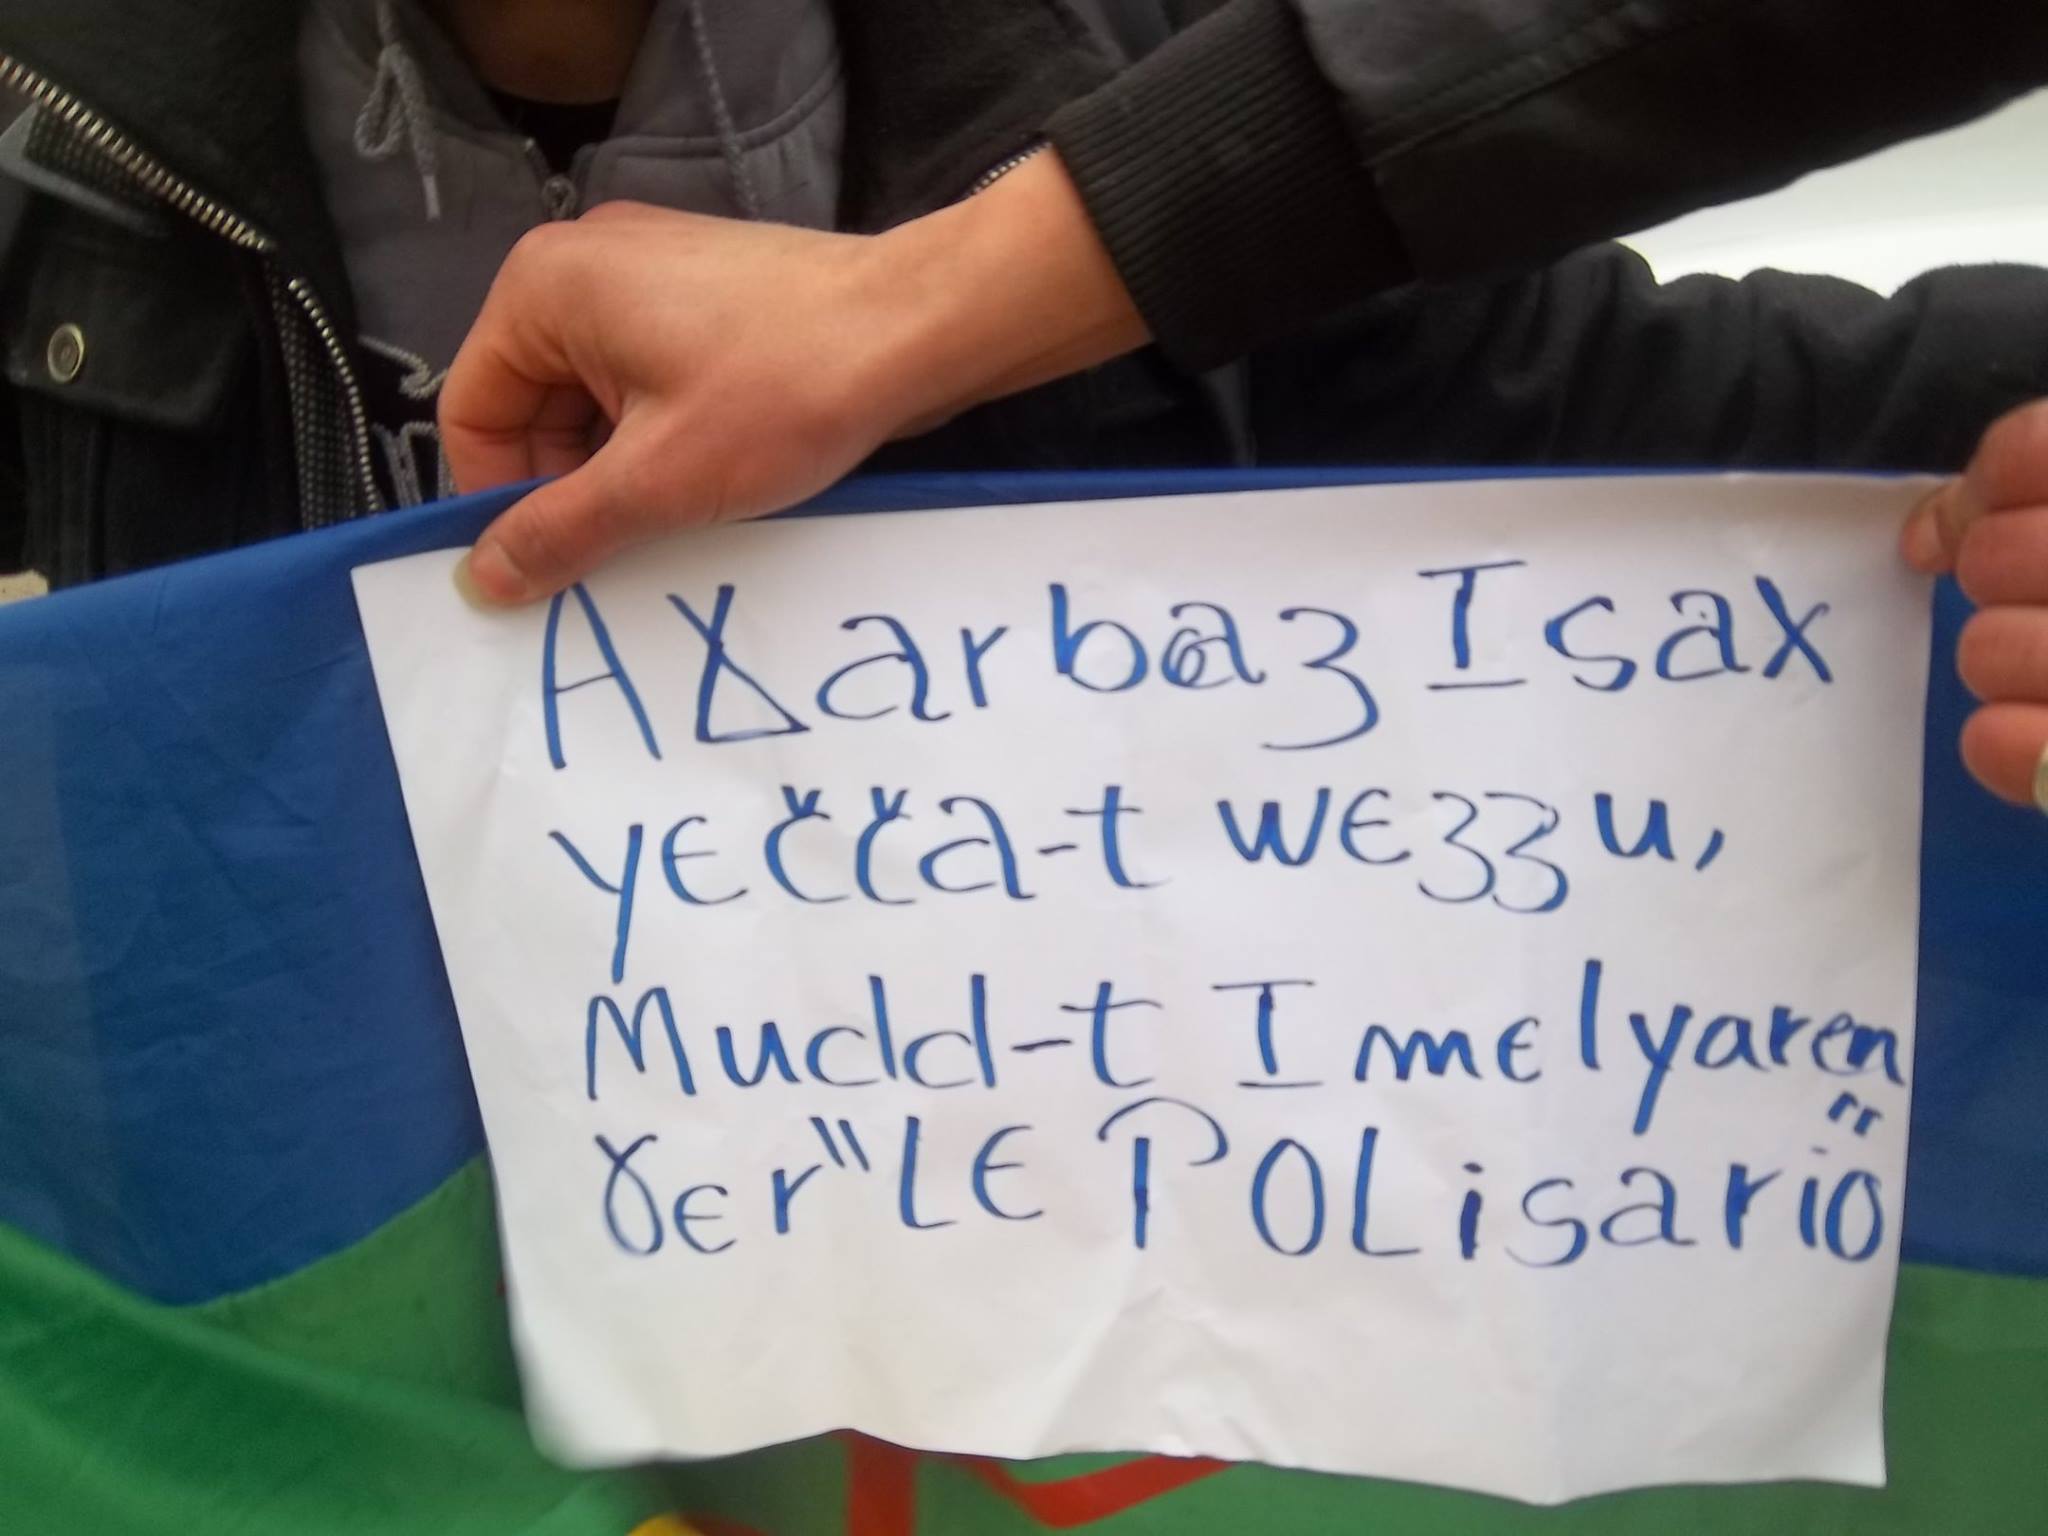 Aɣarbaz Isax
yečča-t wezzu,
Mudd-t Imelyaren
ɣer "LE POLisario"